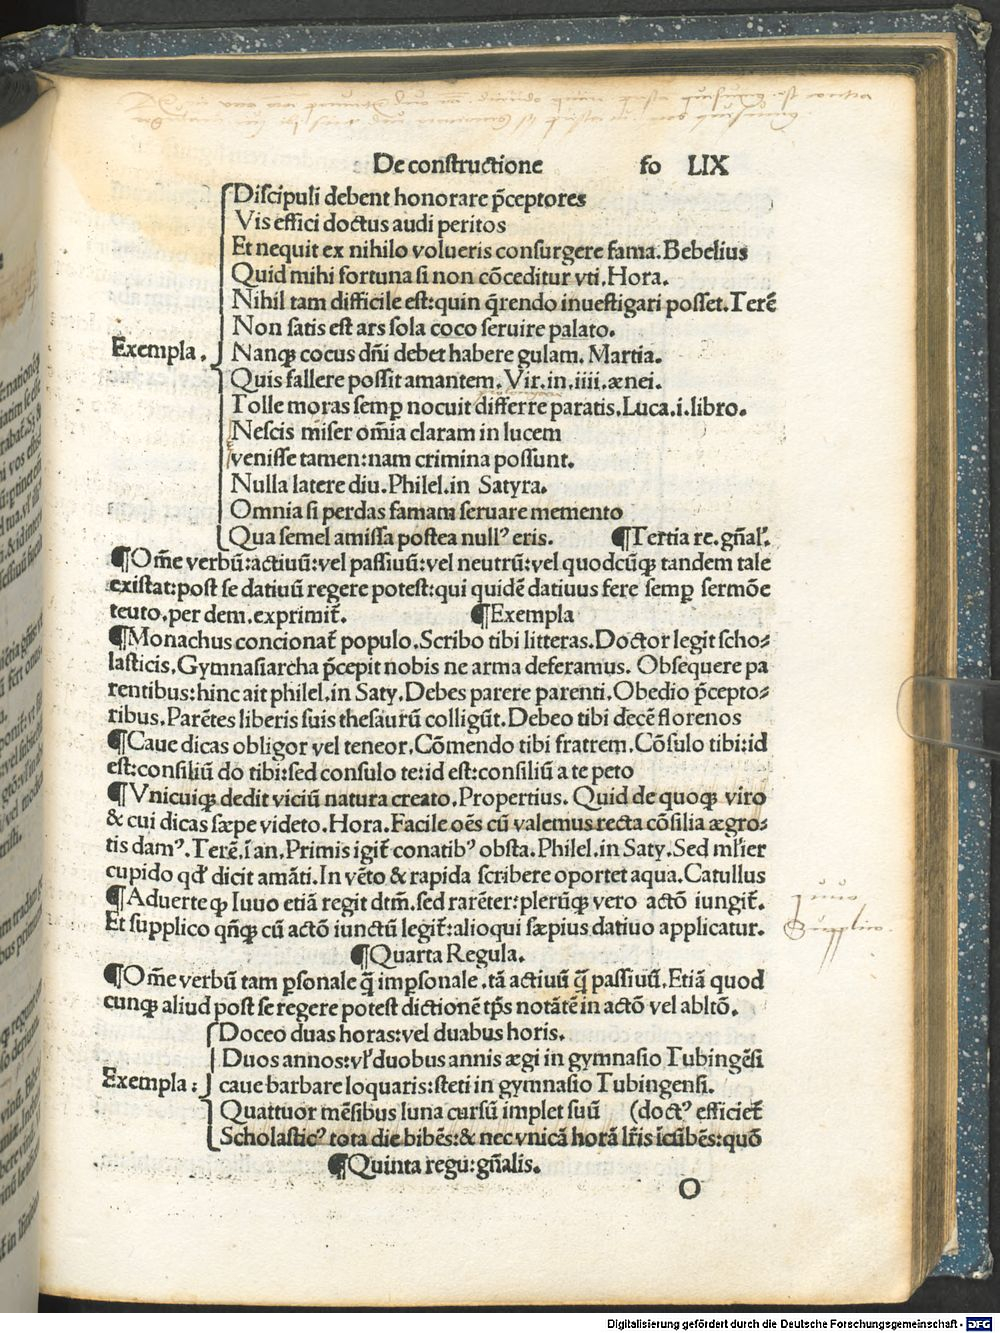 De constructione fo LIX
Discipuli debent honorare p̄ceptores
Vis effici doctus audi peritos
Et nequit ex nihilo volueris consurgere fama.Bebelius
Quid mihi fortuna si non cōceditur vti.Hora.
Nihil tam difficile est:quin q̄rendo inuestigari posset.Terē
Non satis est ars sola coco seruire palato.
Exempla. Nanqꝫ cocus dn̄i debet habere gulam. Martia.
Quis fallere possit amantem.Vir.in.iiii.ænei.
Tolle moras semꝑ nocuit differre paratis.Luca.i.libro.
Nescis miser om̄ia claram in lucem
venisse tamen:nam crimina possunt.
Nulla latere diu.Philel.in Satyra.
Omnia si perdas famam seruare memento
Qua semel amissa postea nullꝰ eris. ¶Tertia re.gn̄al'.
¶Om̄e verbū:actiuū:vel passiuū:vel neutrū:vel quodcūqꝫ tandem tale
existat:post se datiuū regere potest:qui quidē datiuus fere semꝑ sermōe
teuto.per dem.exprimit᷑. ¶Exempla
¶Monachus concionat᷑ populo.Scribo tibi litteras.Doctor legit scho⸗
lasticis.Gymnasiarcha p̄cepit nobis ne arma deferamus. Obsequere pa
rentibus:hinc ait philel.in Saty.Debes parere parenti.Obedio p̄cepto⸗
ribus.Parētes liberis suis thesaurū colligūt.Debeo tibi decē florenos
¶Caue dicas obligor vel teneor.Cōmendo tibi fratrem.Cōsulo tibi:id
est:consiliū do tibi:sed consulo te:id est:consiliū a te peto
¶Vnicuiqꝫ dedit viciū natura creato.Propertius. Quid de quoqꝫ viro
& cui dicas sæpe videto.Hora.Facile oēs cū valemus recta cōsilia ægro⸗
tis damꝰ.Terē.ī an.Primis igit᷑ conatibꝰ obsta.Philel.in Saty.Sed ml'ier
cupido qd' dicit amāti.In vēto & rapida scribere oportet aqua.Catullus
¶Aduerte qꝙ Iuuo etiā regit dtm̄.sed rarēter:plerūqꝫ vero actō iungit᷑.
Et supplico qn̄qꝫ cū actō iunctū legit᷑:alioqui sæpius datiuo applicatur.
Iuuo
Supplico.
¶Quarta Regula.
¶Om̄e verbū tam ꝑsonale q̄ imꝑsonale.tā actiuū q̄ passiuū.Etiā quod
cunqꝫ aliud post se regere potest dictionē tp̄s notātē in actō vel abltō.
Doceo duas horas:vel duabus horis.
Duos annos:vl' duobus annis ægi in gymnasio Tubingēsi
Exempla: caue barbare loquaris:steti in gymnasio Tubingensi.
Quattuor mēsibus luna cursū implet suū (doctꝰ efficiet᷑
Scholasticꝰ tota die bibēs:& nec vnicā horā lr̄is īcūbēs:quō
¶Quinta regu:gn̄alis.
O
Digitalisierung gefördert durch die Deutsche Forschungsgemeinschaft - DFG